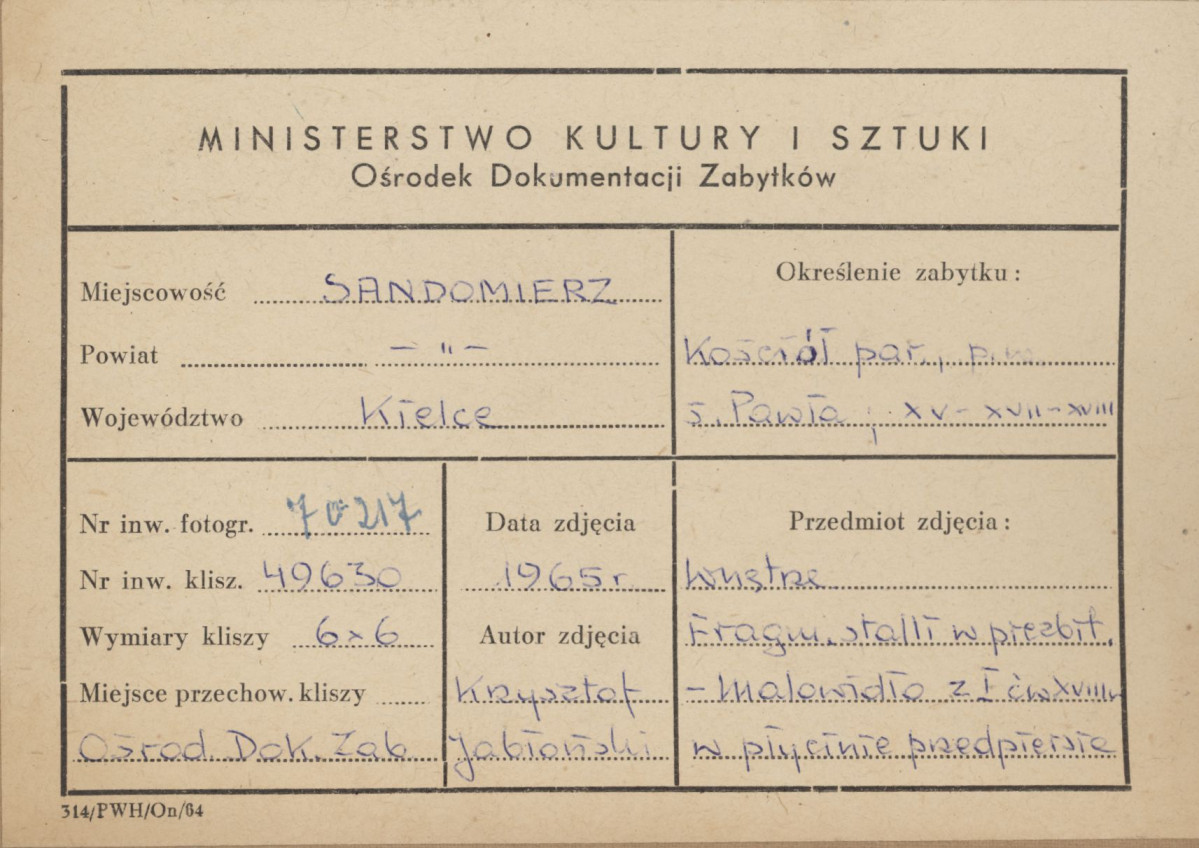 MINISTERSTWO KULTURY I SZTUKI
Ośrodek Dokumentacji Zabytków
Miejscowość SANDOMIERZ
Powiat — " —
Województwo Kielce
Określenie zabytku :
Kościół par., p.w.
ś. Pawła ; XV – XVII – XVIII
Nr inw. fotogr. 70217
Nr inw. klisz. 49630
Wymiary kliszy 6×6
Miejsce przechow. kliszy
Ośrod. Dok. Zab
Data zdjęcia
1965 r.
Autor zdjęcia
Krzysztof
Jabłoński
Przedmiot zdjęcia :
Wnętrze
Fragm. stalli w prezbit.
– Malowidło z I ćw XVIII w
w płycinie przedpiersia
314/PWH/On/64